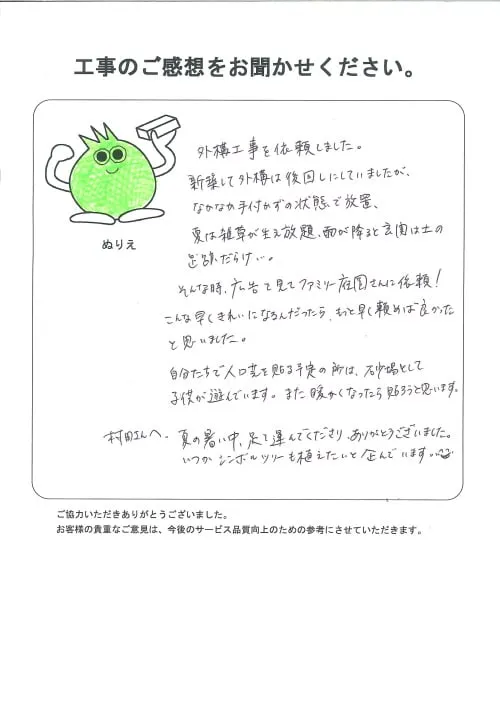 工事のご感想をお聞かせください。
ぬりえ
外構工事を依頼しました。
新築して外構は後回しにしていましたが、
なかなか手付かずの状態で放置、
夏は雑草が生え放題、雨が降ると玄関は土の
足跡だらけ…。
そんな時、広告で見てファミリー庭園さんに依頼!
こんな早くきれいになるんだったら、もっと早く頼めば良かった
と思いました。
自分たちで人口芝を貼る予定の所は、砂場として
子供が遊んでいます。また暖かくなったら貼ろうと思います。
村田さんへ。夏の暑い中、足を運んでくださり、ありがとうございました。
いつかシンボルツリーも植えたいと企んでいます…
ご協力いただきありがとうございました。
お客様の貴重なご意見は、今後のサービス品質向上のための参考にさせていただきます。